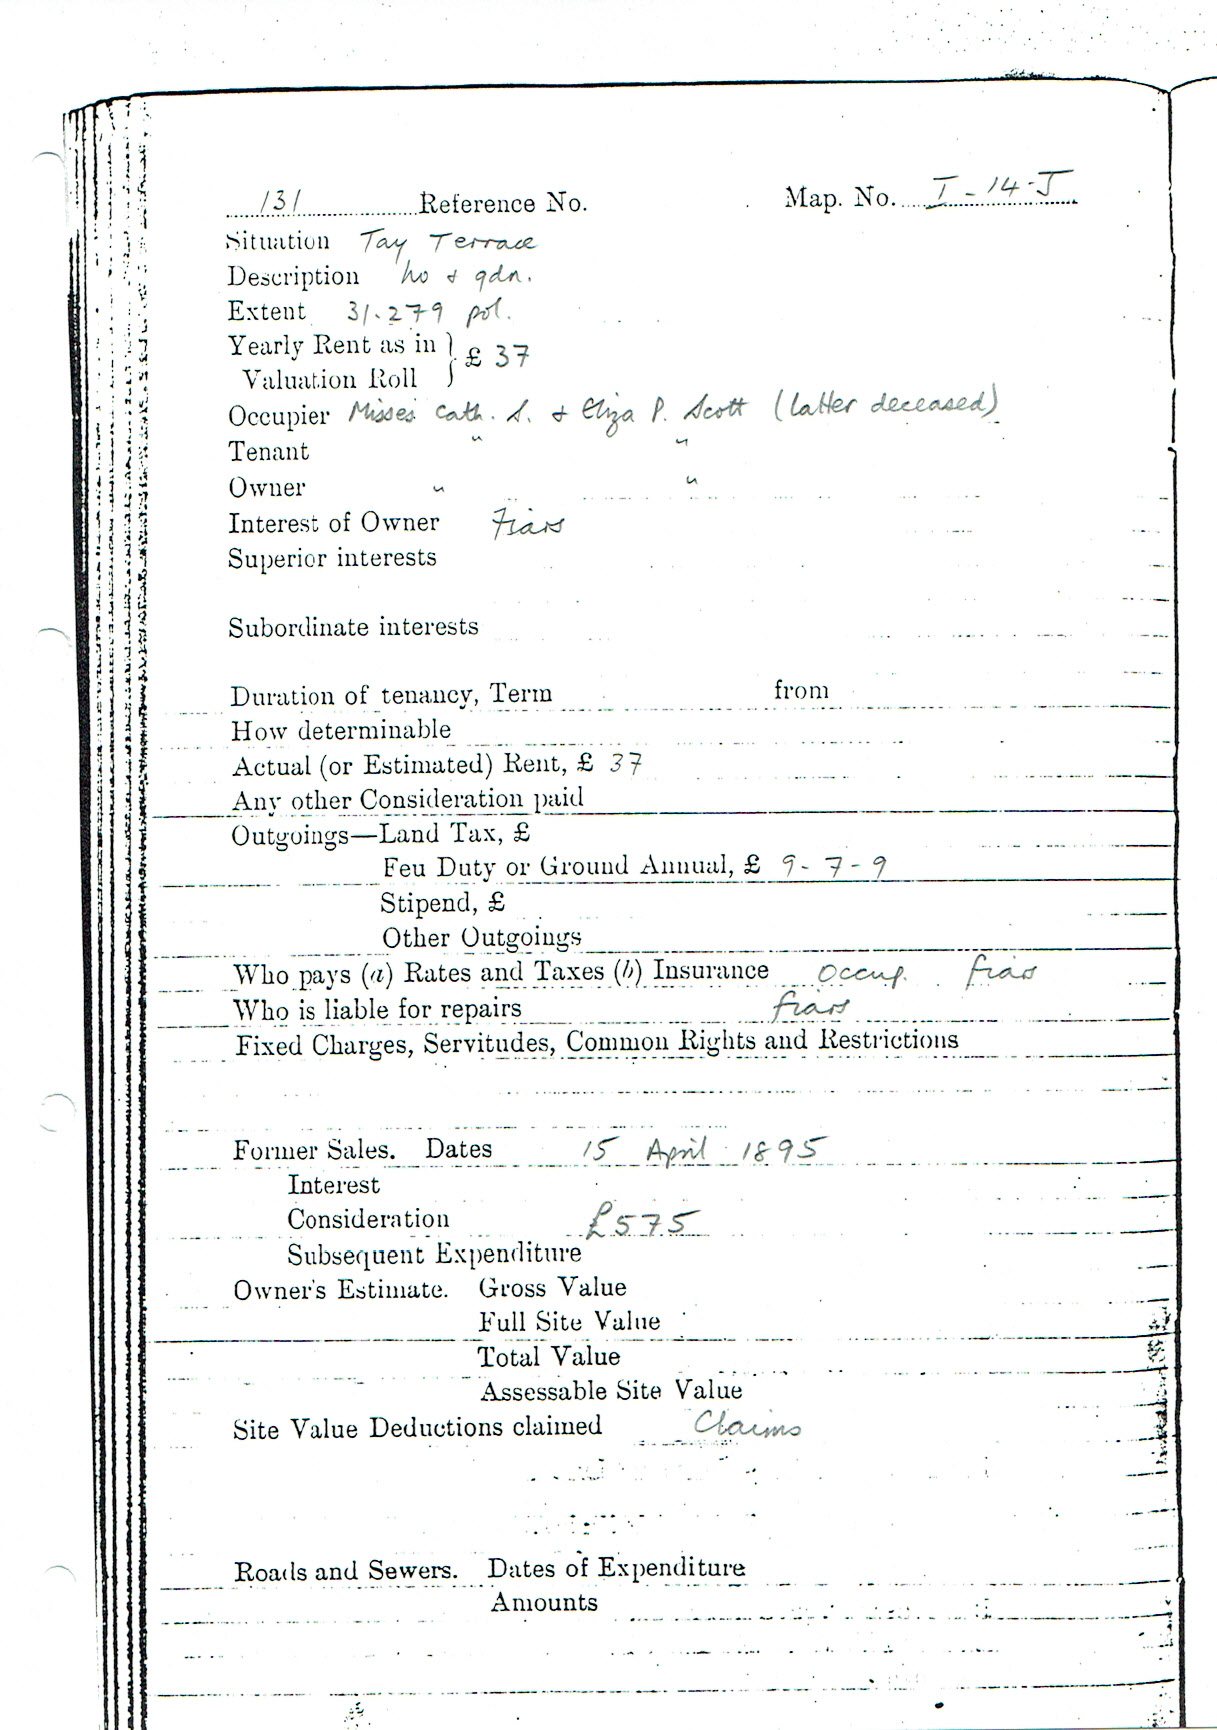 131 Reference No. Map. No. I-14-J
Situation Tay Terrace
Description ho & gdn.
Extent 31.279 pol.
Yearly Rent as in } £ 37
Valuation Roll
Occupier Misses Cath. S. & Eliza P. Scott (latter deceased)
Tenant " "
Owner " "
Interest of Owner Fiars
Superior interests
Subordinate interests
Duration of tenancy, Term from
How determinable
Actual (or Estimated) Rent, £ 37
Any other Consideration paid
Outgoings—Land Tax, £
Feu Duty or Ground Annual, £ 9-7-9
Stipend, £
Other Outgoings
Who pays (a) Rates and Taxes (b) Insurance occup. fiars
Who is liable for repairs fiars
Fixed Charges, Servitudes, Common Rights and Restrictions
Former Sales. Dates 15 April 1895
Interest
Consideration £575
Subsequent Expenditure
Owner's Estimate. Gross Value
Full Site Value
Total Value
Assessable Site Value
Site Value Deductions claimed Claims
Roads and Sewers. Dates of Expenditure
Amounts